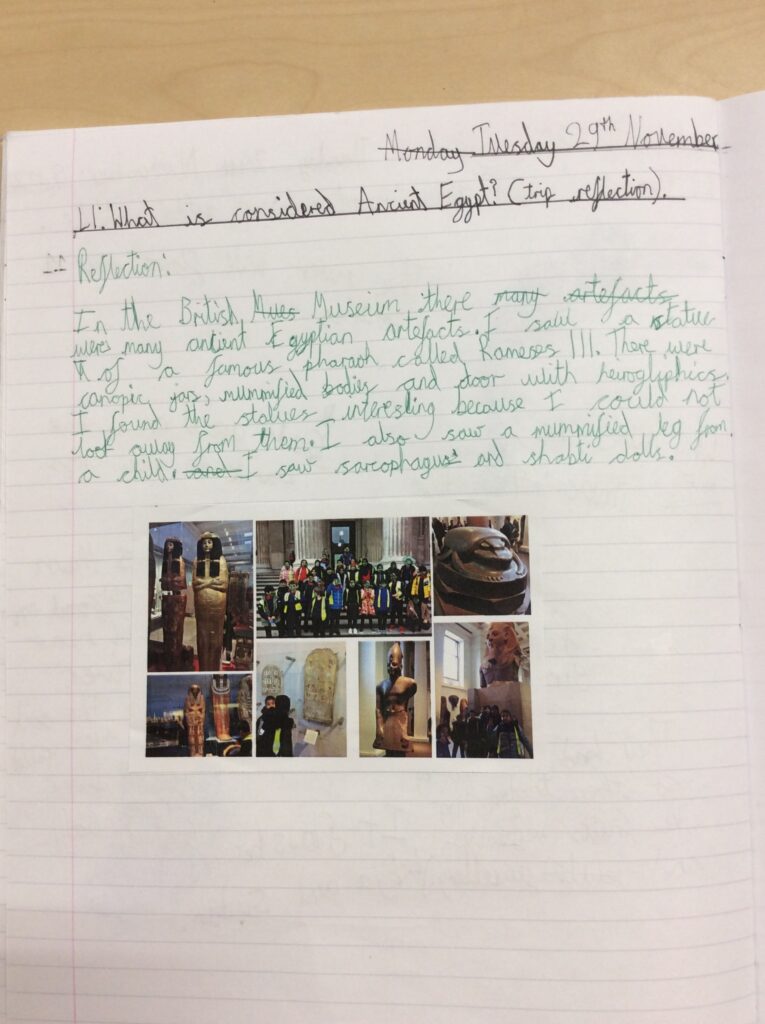 Monday Tuesday 29th November
LI: What is considered Ancient Egypt? (trip reflection).
Reflection:
In the British Mues Museum there many artefacts
were many antient Egyptian artefacts. I saw a statue
of a famous pharaoh called Rameses III. There were
canopic jars, mummified bodies and door with heiroglyphics.
I found the statues interesting because I could not
look away from them. I also saw a mummified leg from
a child. and I saw sarcophagus' and shabti dolls.